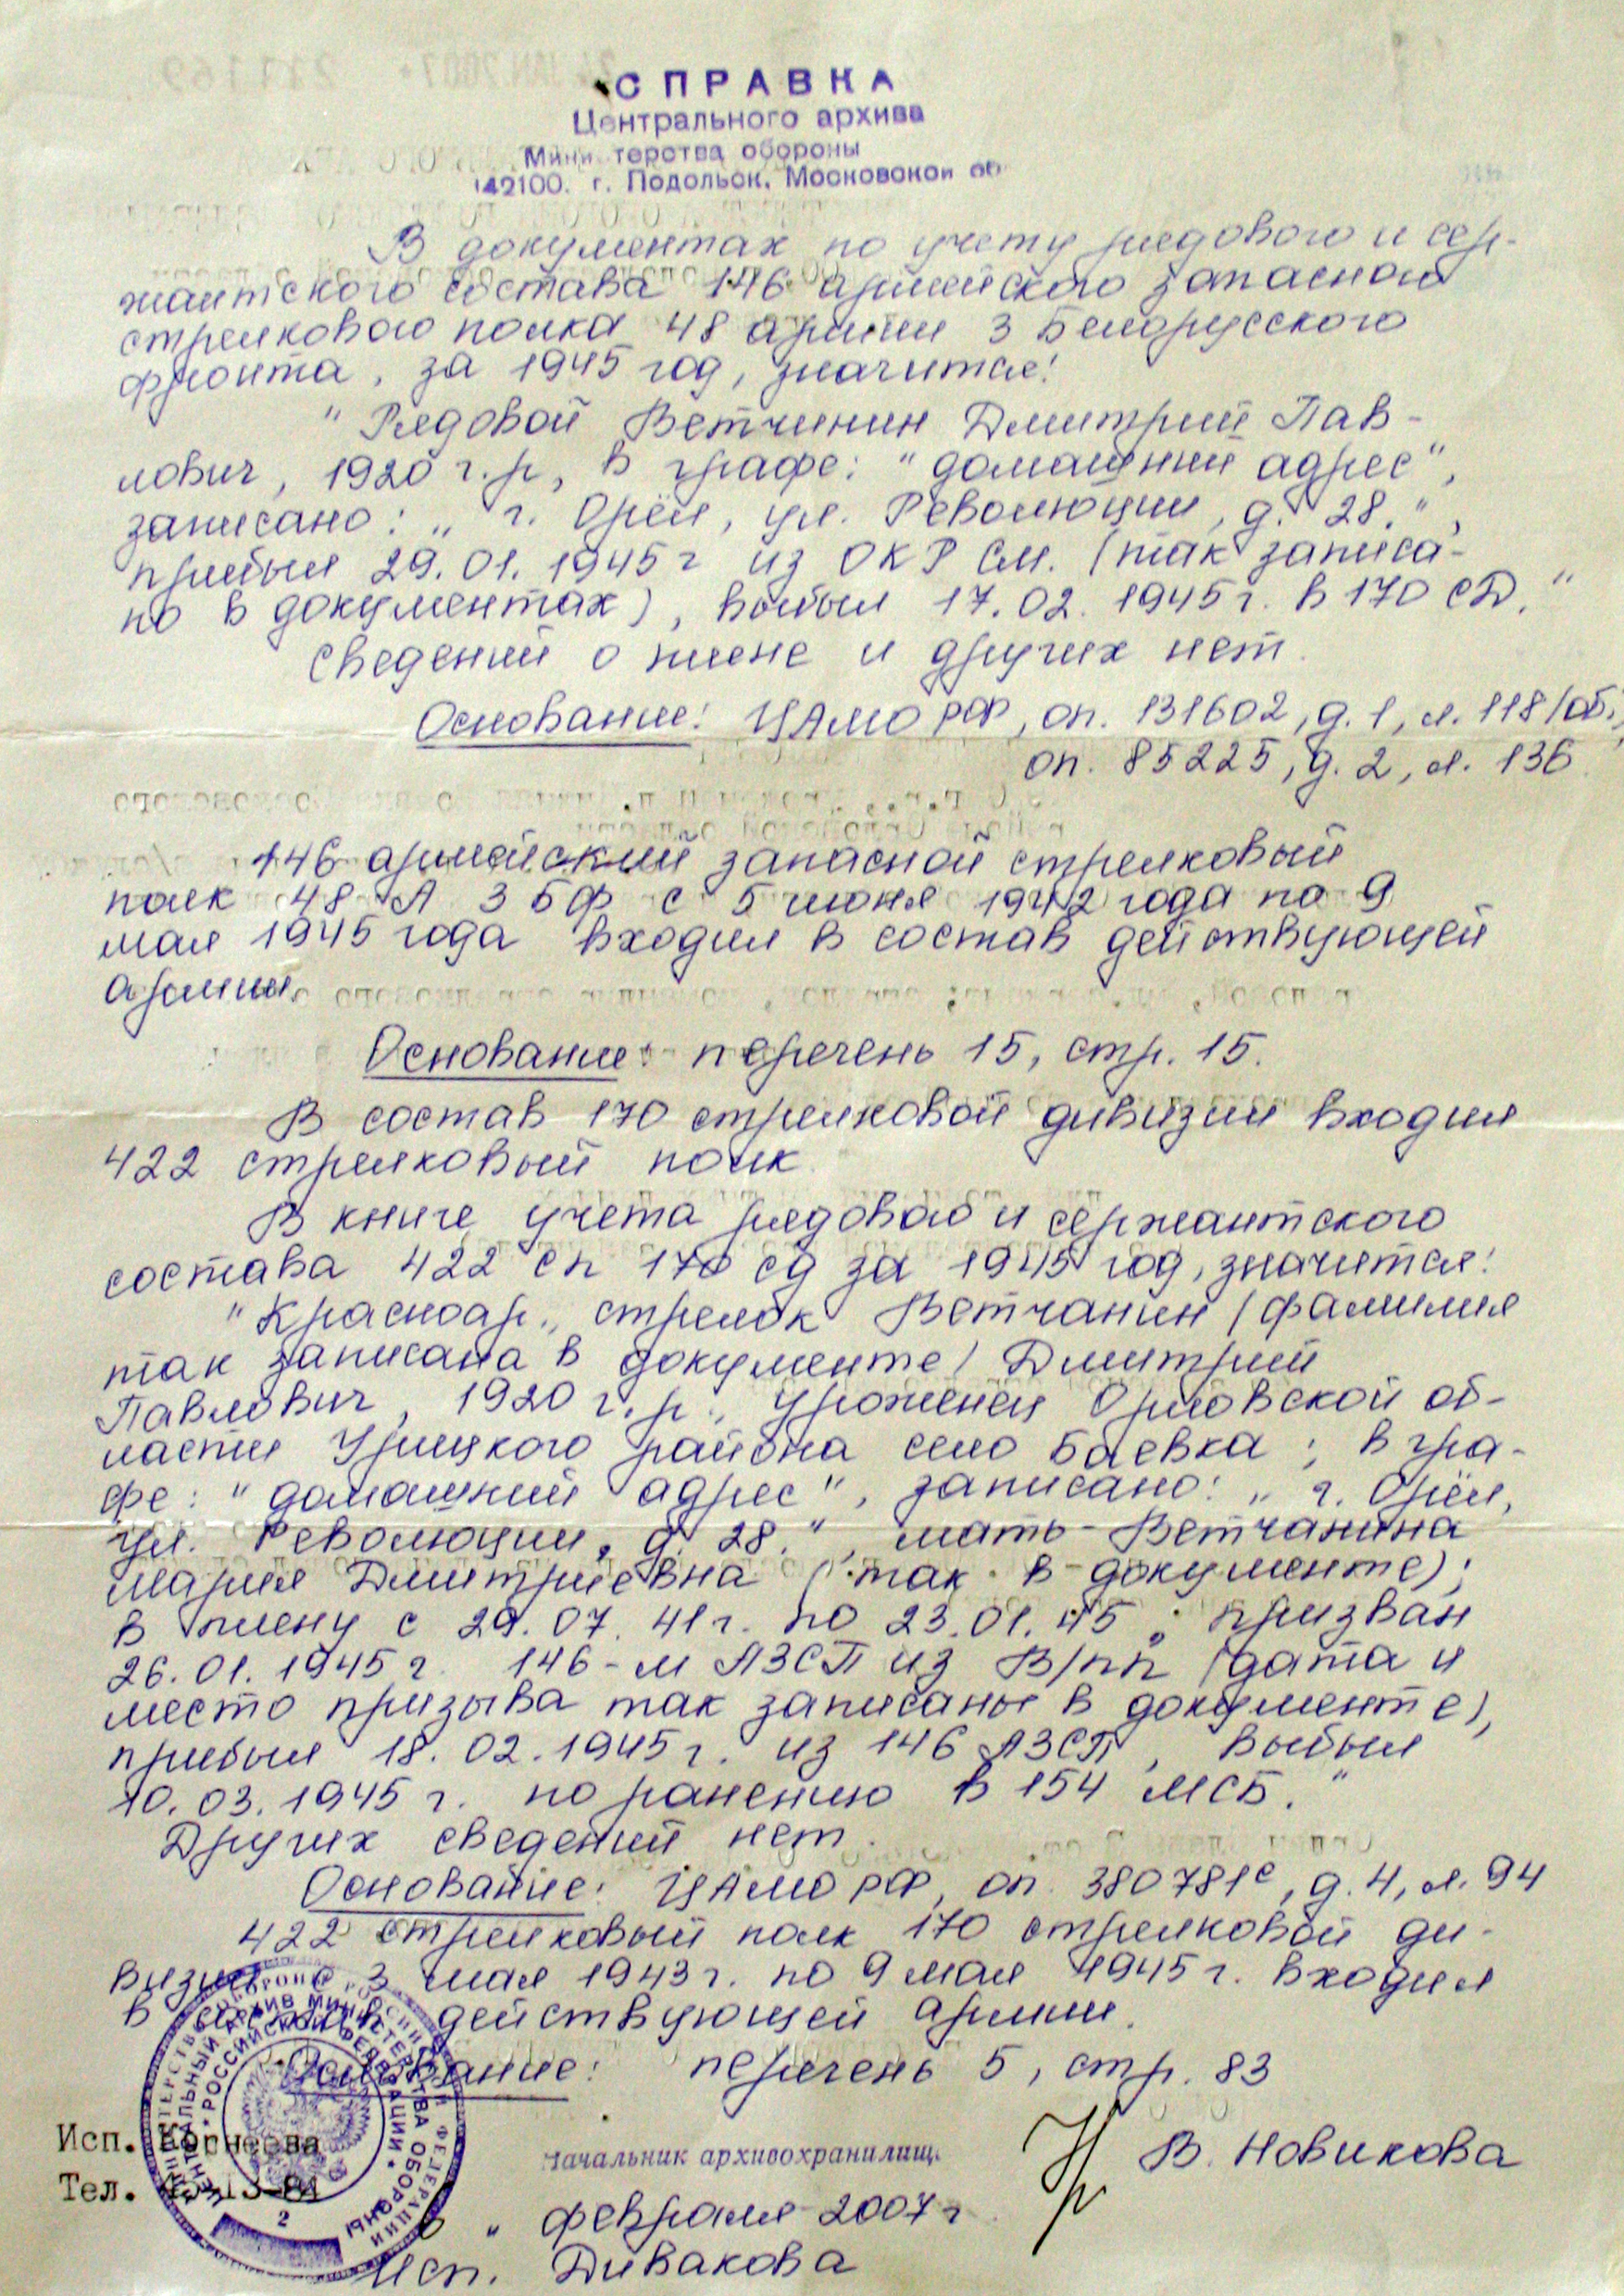 СПРАВКА
Центрального архива
Мини терства обороны
142100. г. Подольск, Московской об
В документах по учету рядового и сер-
жантского состава 146 армейского запасного
стрелкового полка 48 армии 3 Белорусского
фронта, за 1945 год, значится:
"Рядовой Ветчинин Дмитрий Пав-
лович, 1920 г.р., в графе: "домашний адрес",
записано: „ г. Орёл, ул. Революции, д. 28.",
прибыл 29.01.1945г из ОКР См. (так записа-
но в документах), выбыл 17.02.1945г. в 170 СД."
Сведений о плене и других нет.
Основание: ЦАМО РФ, оп. 131602, д.1, л.118/об.,
оп. 85225, д.2, л. 136
146 армейский запасной стрелковый
полк 48 А 3 БФ с 5 июня 1942 года по 9
мая 1945 года входил в состав действующей
армии.
Основание: перечень 15, стр. 15.
В состав 170 стрелковой дивизии входил
422 стрелковый полк
В книге учета рядового и сержантского
состава 422 сп 170 сд за 1945 год, значится:
"Красноар., стрелок Ветчанин /фамилия
так записана в документе/ Дмитрий
Павлович, 1920 г.р., уроженец Орловской об-
ласти Урицкого района село Баевка; в гра-
фе: "домашний адрес", записано: „ г. Орёл,
ул. Революции, д. 28.", мать - Ветчанина
Мария Дмитриевна (так в документе);
в плену с 29.07.41г. по 23.01.45; призван
26.01.1945г. 146-м АЗСП из В/пп (дата и
место призыва так записаны в документе),
прибыл 18.02.1945г. из 146 АЗСП, выбыл
10.03.1945г. по ранению в 154 МСБ."
Других сведений нет.
Основание: ЦАМО РФ, оп. 380781с, д.4, л.94
422 стрелковый полк 170 стрелковой ди-
визии с 3 мая 1943г. по 9 мая 1945г. входил
в состав действующей армии.
Основание: перечень 5, стр. 83
ЦЕНТРАЛЬНЫЙ АРХИВ МИНИСТЕРСТВА ОБОРОНЫ
РОССИЙСКОЙ ФЕДЕРАЦИИ
2
Исп. Корнеева
Тел.
Начальник архивохранилищ
В. Новикова
„ февраля 2007г
Исп. Дивакова